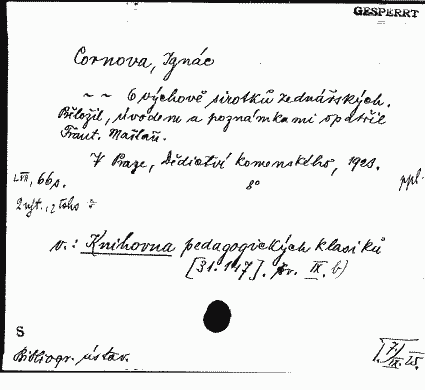 GESPERRT
Cornova, Ignác
~ ~ O výchově sirotků zednářských.
Přeložil, úvodem a poznámkami opatřil
Frant. Mašlaň.
V Praze, Dědictví Komenského, 1923.
LVII, 66 s. 8° ppl.
2 výt.,
v.: Knihovna pedagogických klasiků
[31.147]. Sv. IX. b)
S
Bibliogr. ústav.